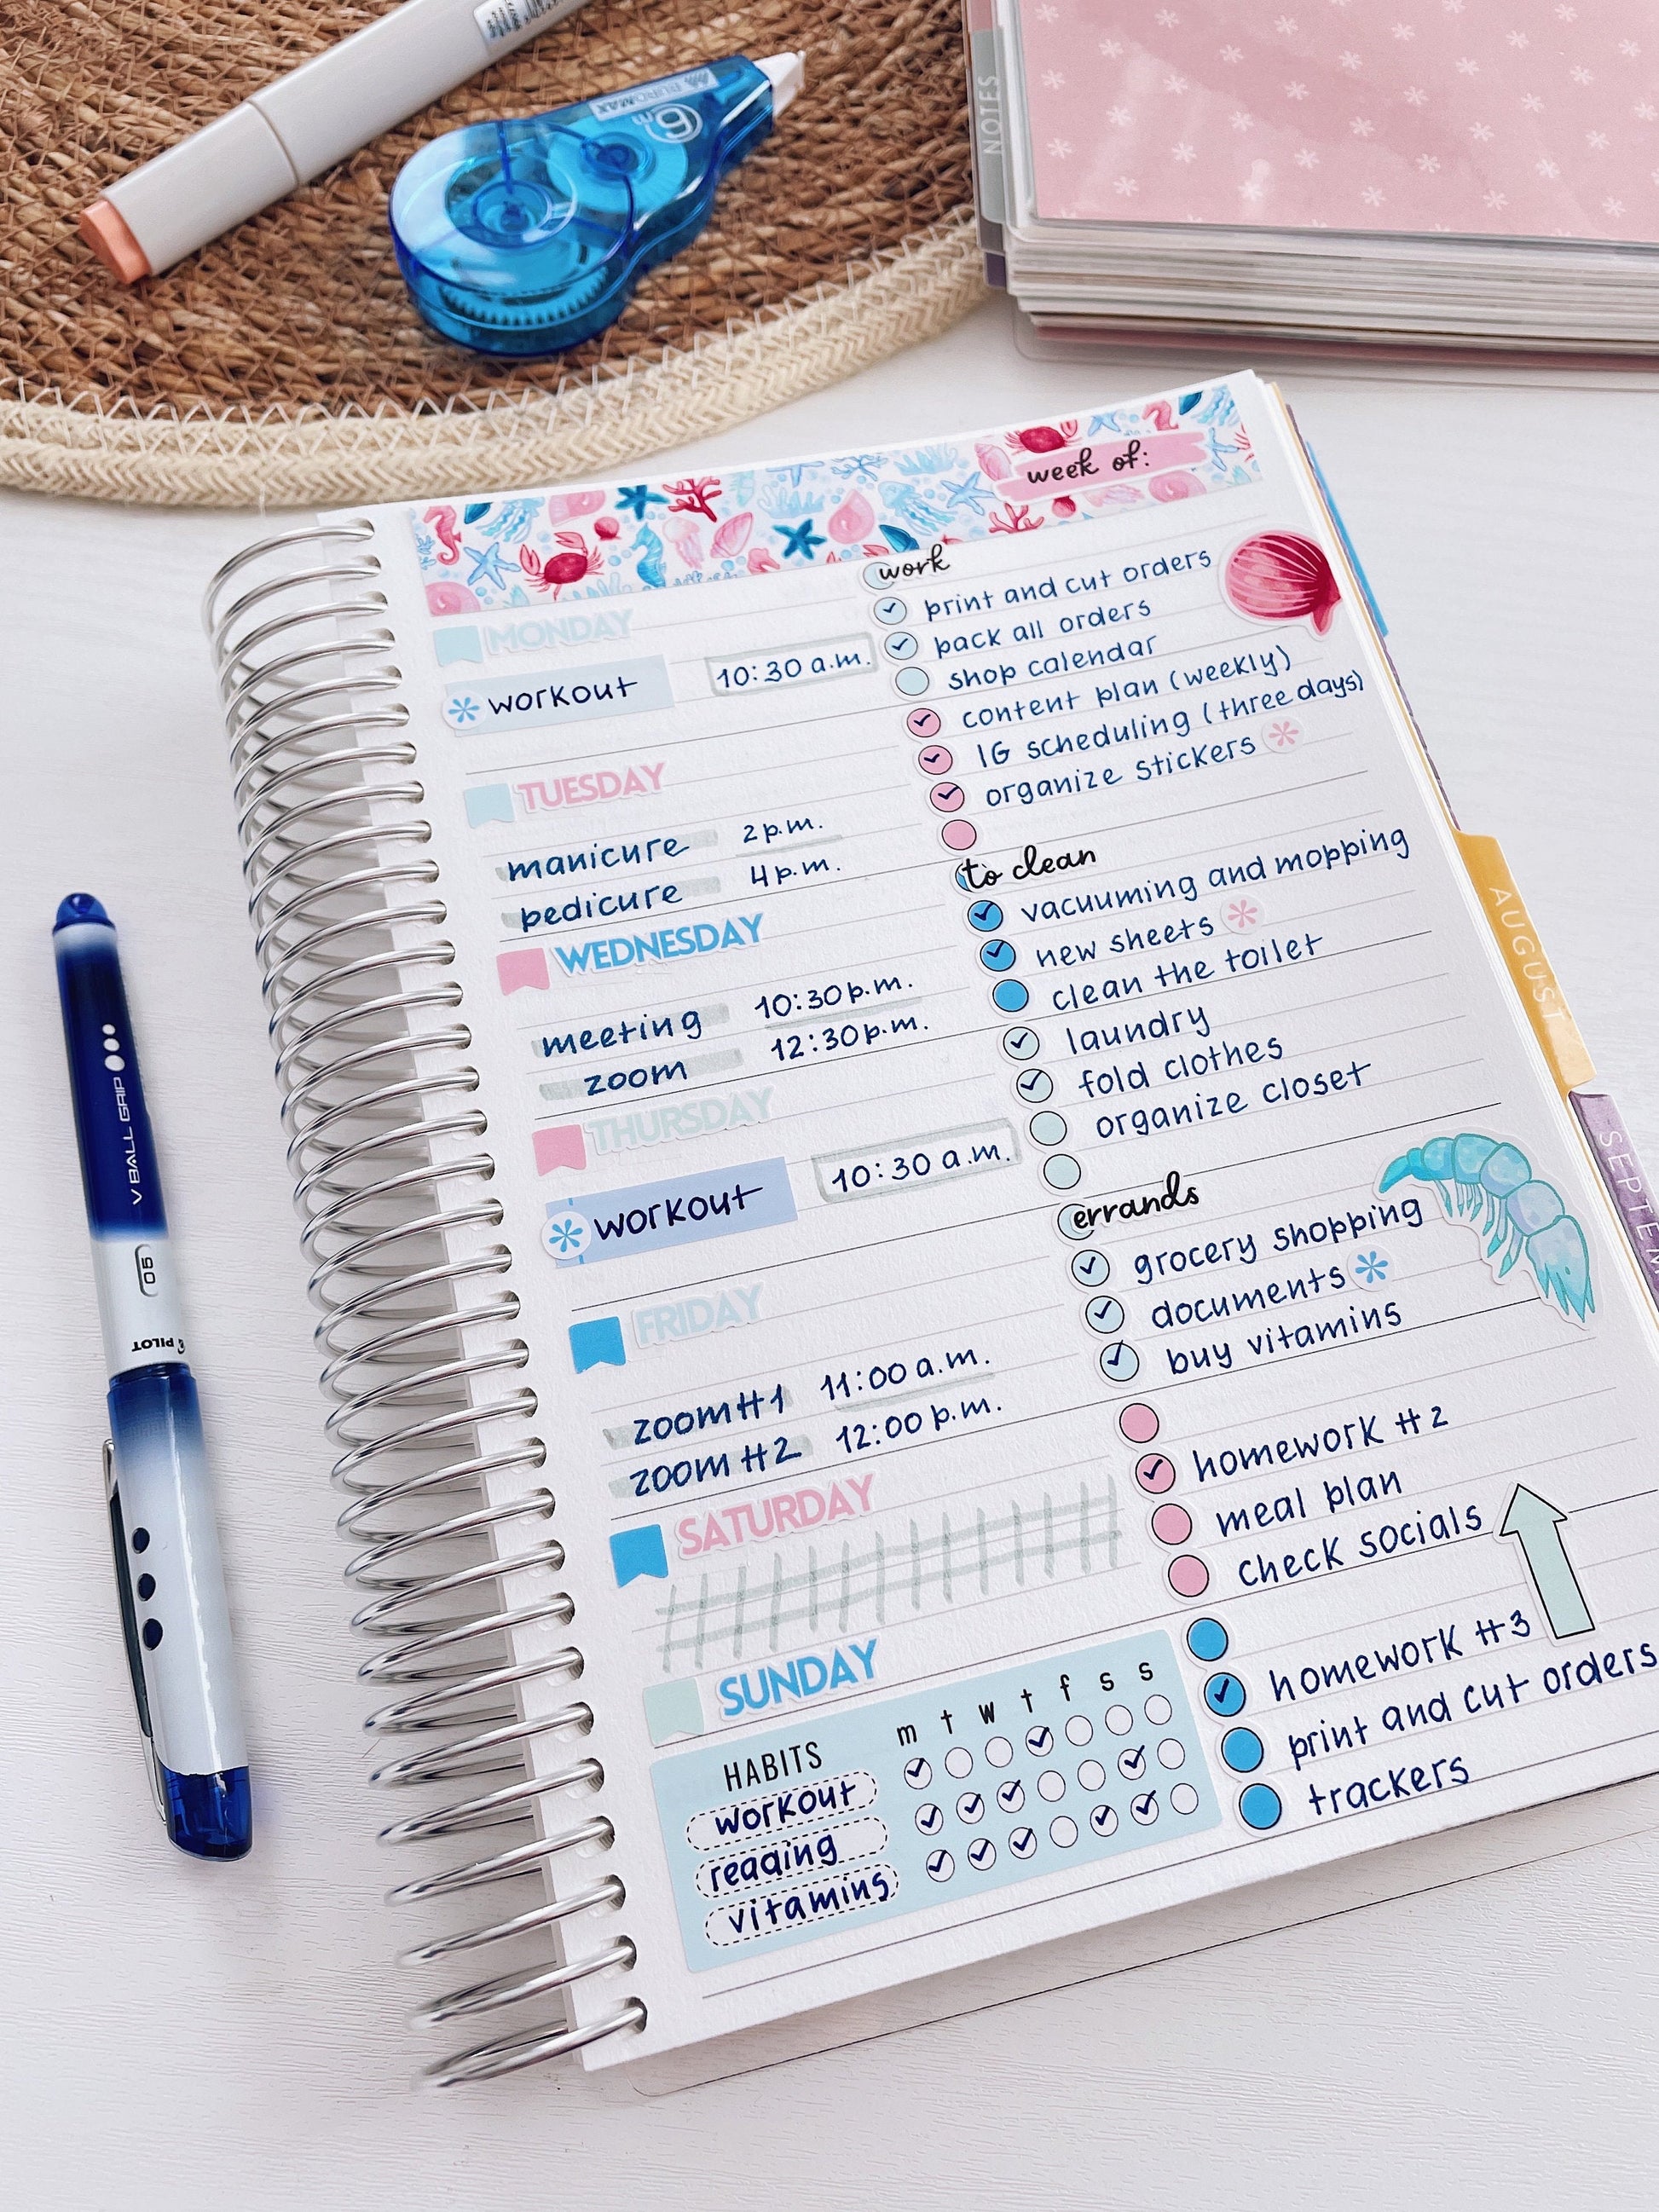 BUROMAX
6m
NOTES
week of:
MONDAY
workout 10:30 a.m.
TUESDAY
manicure 2 p.m.
pedicure 4 p.m.
WEDNESDAY
meeting 10:30 p.m.
zoom 12:30 p.m.
THURSDAY
workout 10:30 a.m.
FRIDAY
zoom #1 11:00 a.m.
zoom #2 12:00 p.m.
SATURDAY
SUNDAY
HABITS m t w t f s s
workout
reading
vitamins
work
print and cut orders
pack all orders
shop calendar
content plan (weekly)
IG scheduling (three days)
organize stickers
to clean
vacuuming and mopping
new sheets
clean the toilet
laundry
fold clothes
organize closet
errands
grocery shopping
documents
buy vitamins
homework #2
meal plan
check socials
homework #3
print and cut orders
trackers
AUGUST
SEPTEM
V BALL GRIP
05
PILOT